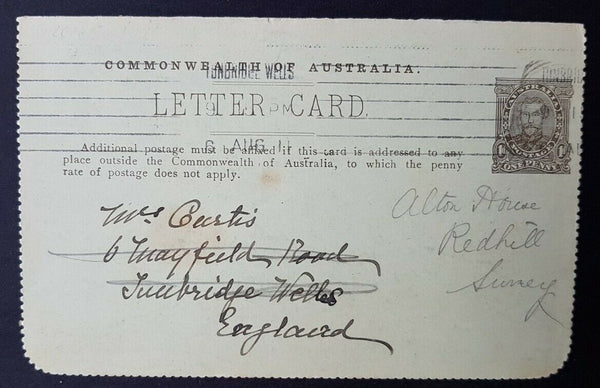 COMMONWEALTH OF AUSTRALIA.
TUNBRIDGE WELLS
LETTER CARD.
9 PM
6 AUG 11
Additional postage must be affixed if this card is addressed to any
place outside the Commonwealth of Australia, to which the penny
rate of postage does not apply.
AUSTRALIA
ONE PENNY
Mrs Curtis
6 Mayfield Road
Tunbridge Wells
England
Alton House
Redhill
Surrey